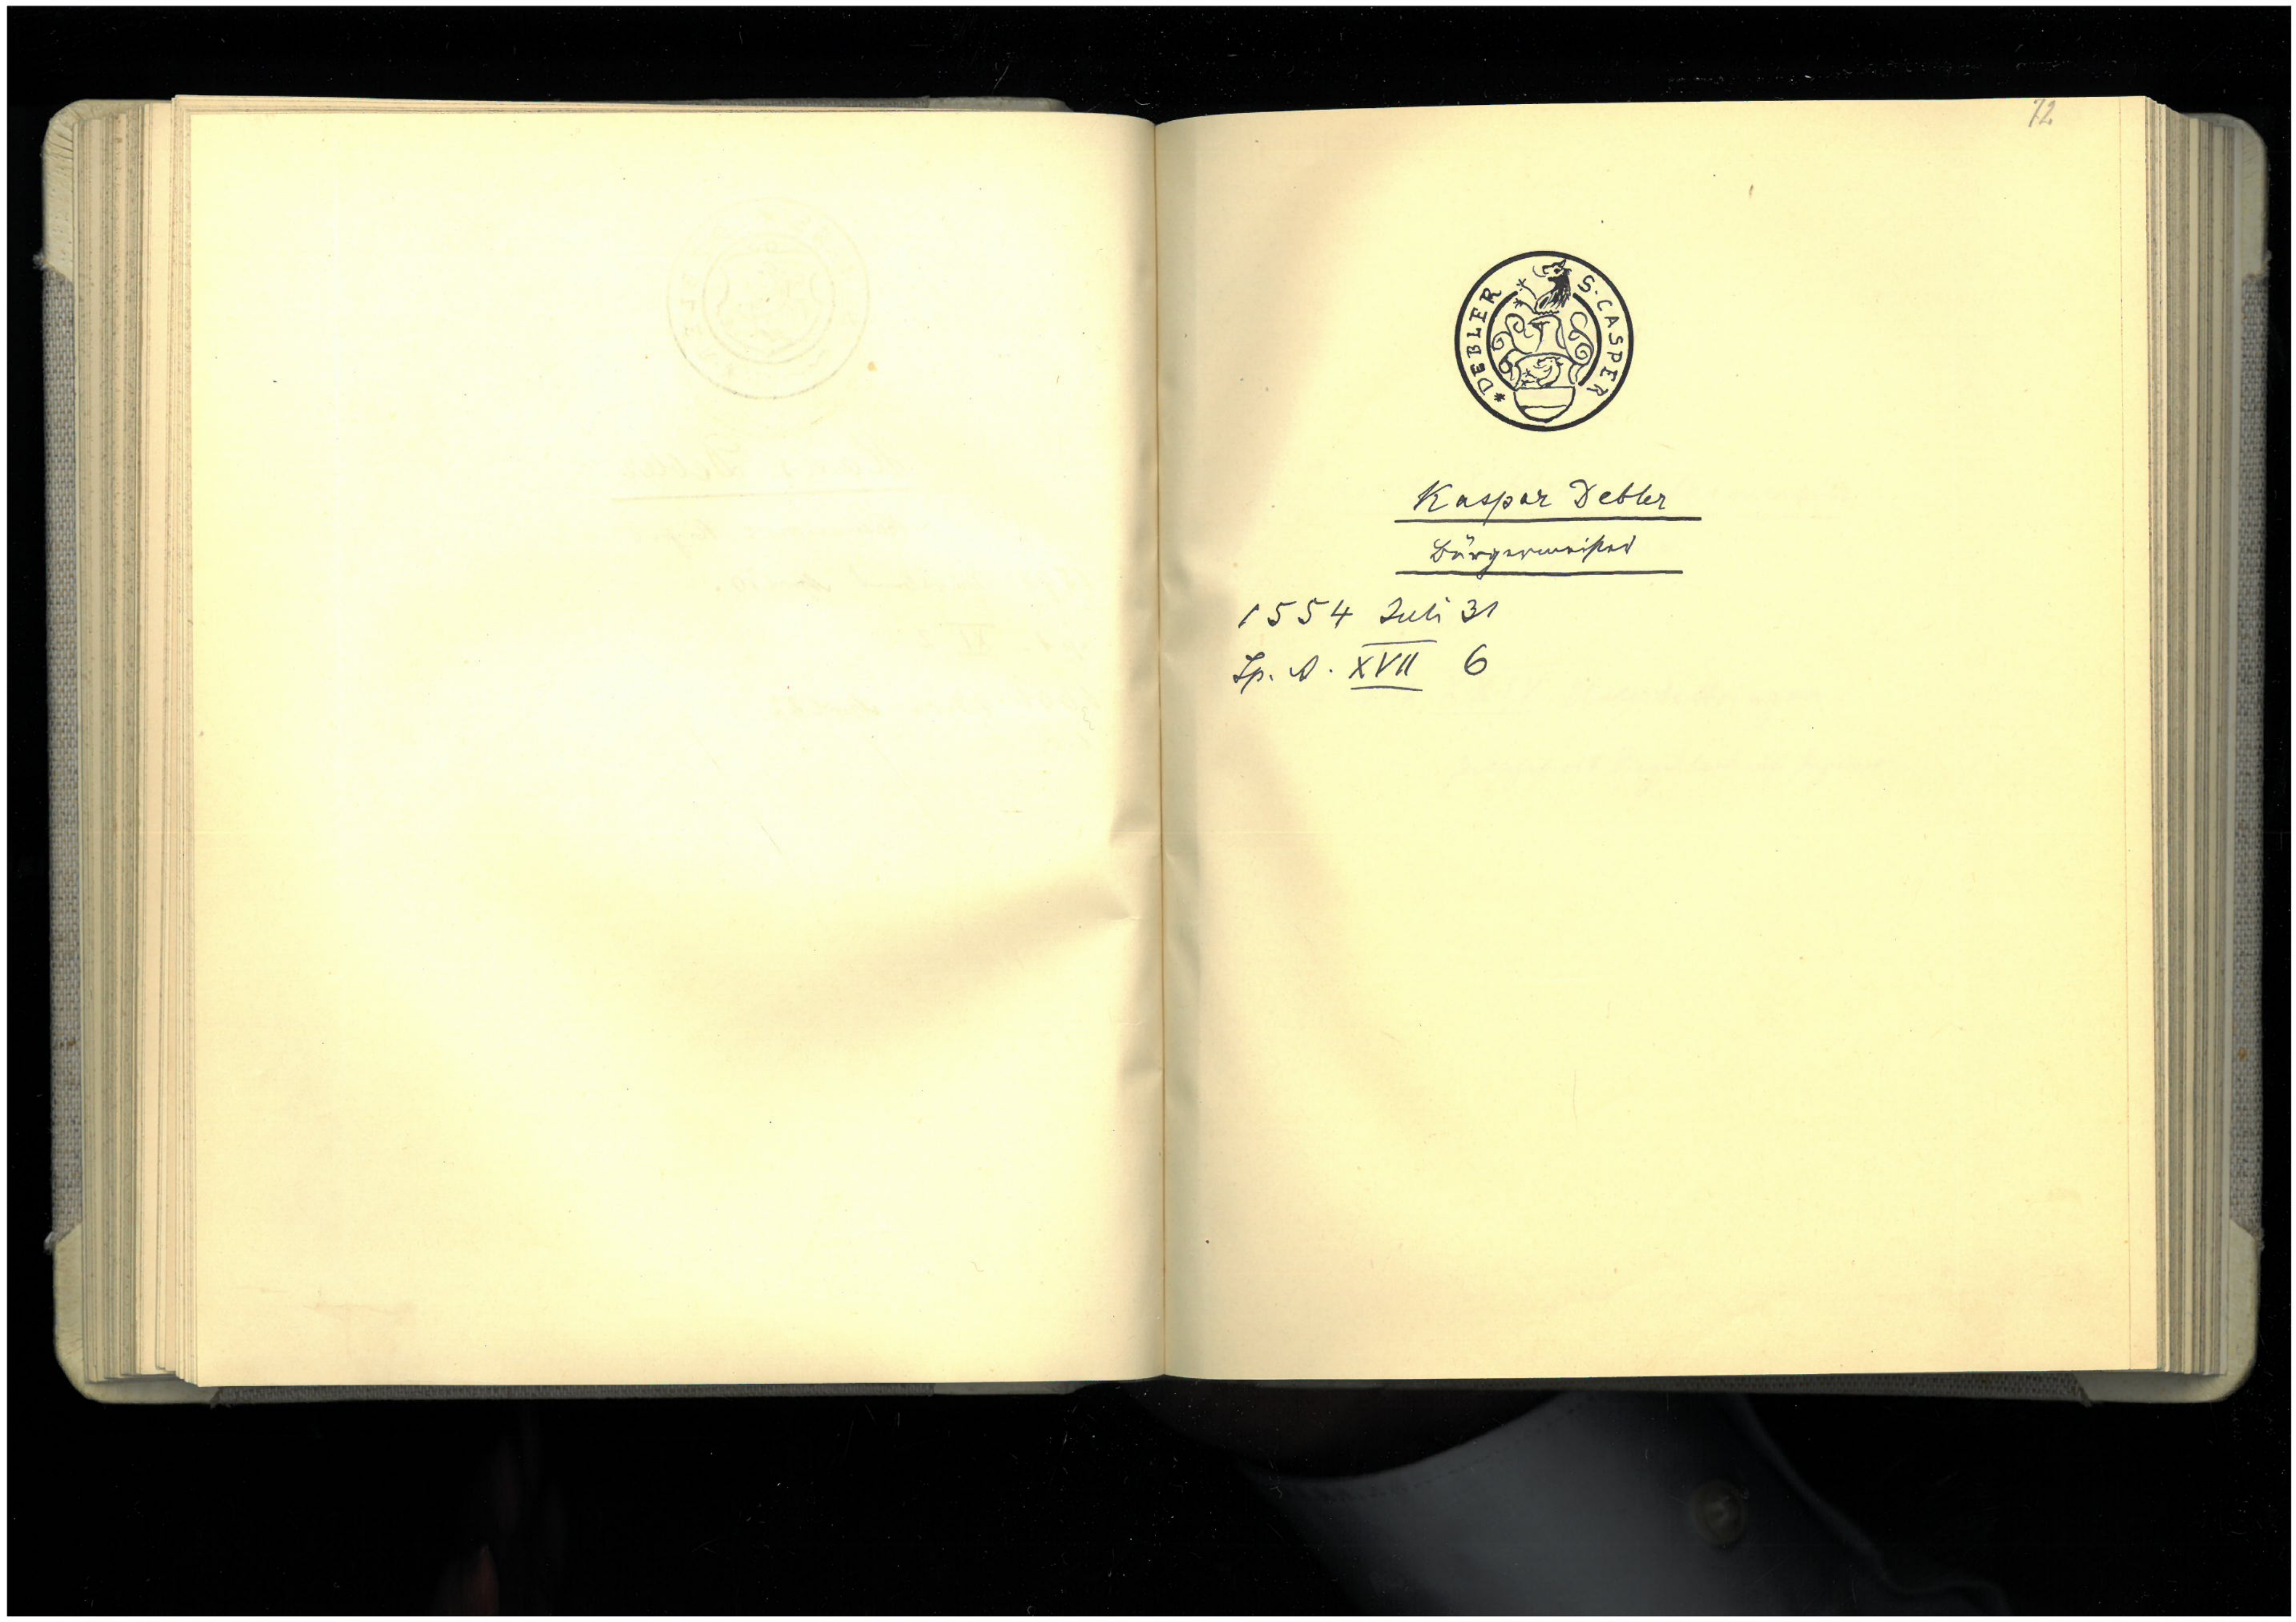 72
S. CASPER DEBLER *
Kaspar Debler
Bürgermeister
1554 Juli 31
Sp. A. XVII 6